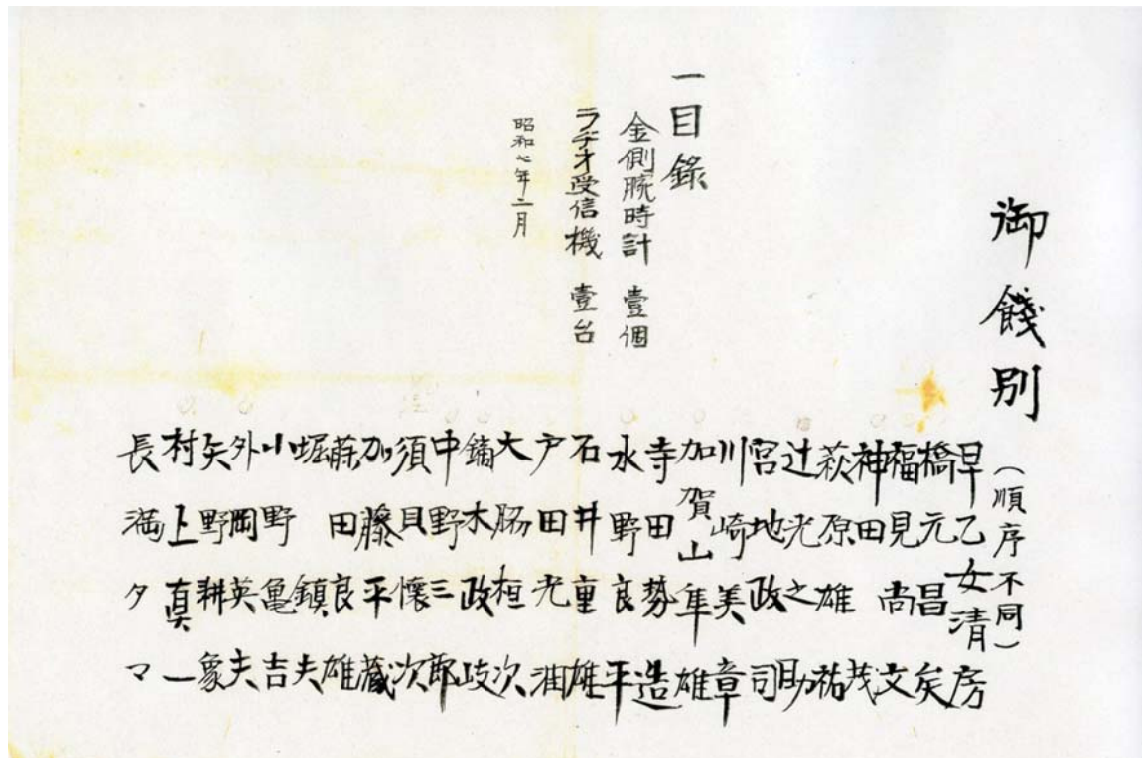 御餞別
一目録
金側腕時計 壹個
ラヂオ受信機 壹台
昭和七年二月
(順序不同)
早乙女清房
橋元昌矣
福見尚文
神田茂
萩原雄祐
辻光之助
宮地政司
川崎美章
加賀山隼雄
寺田勢造
水野良平
石井重雄
戸田光潤
大脇桓次
鏑木政岐
中野三郎
須貝懐次
加藤平蔵
田良雄
堀鎮夫
小野亀吉
外岡英夫
矢野耕象
村上真一
長満タマ